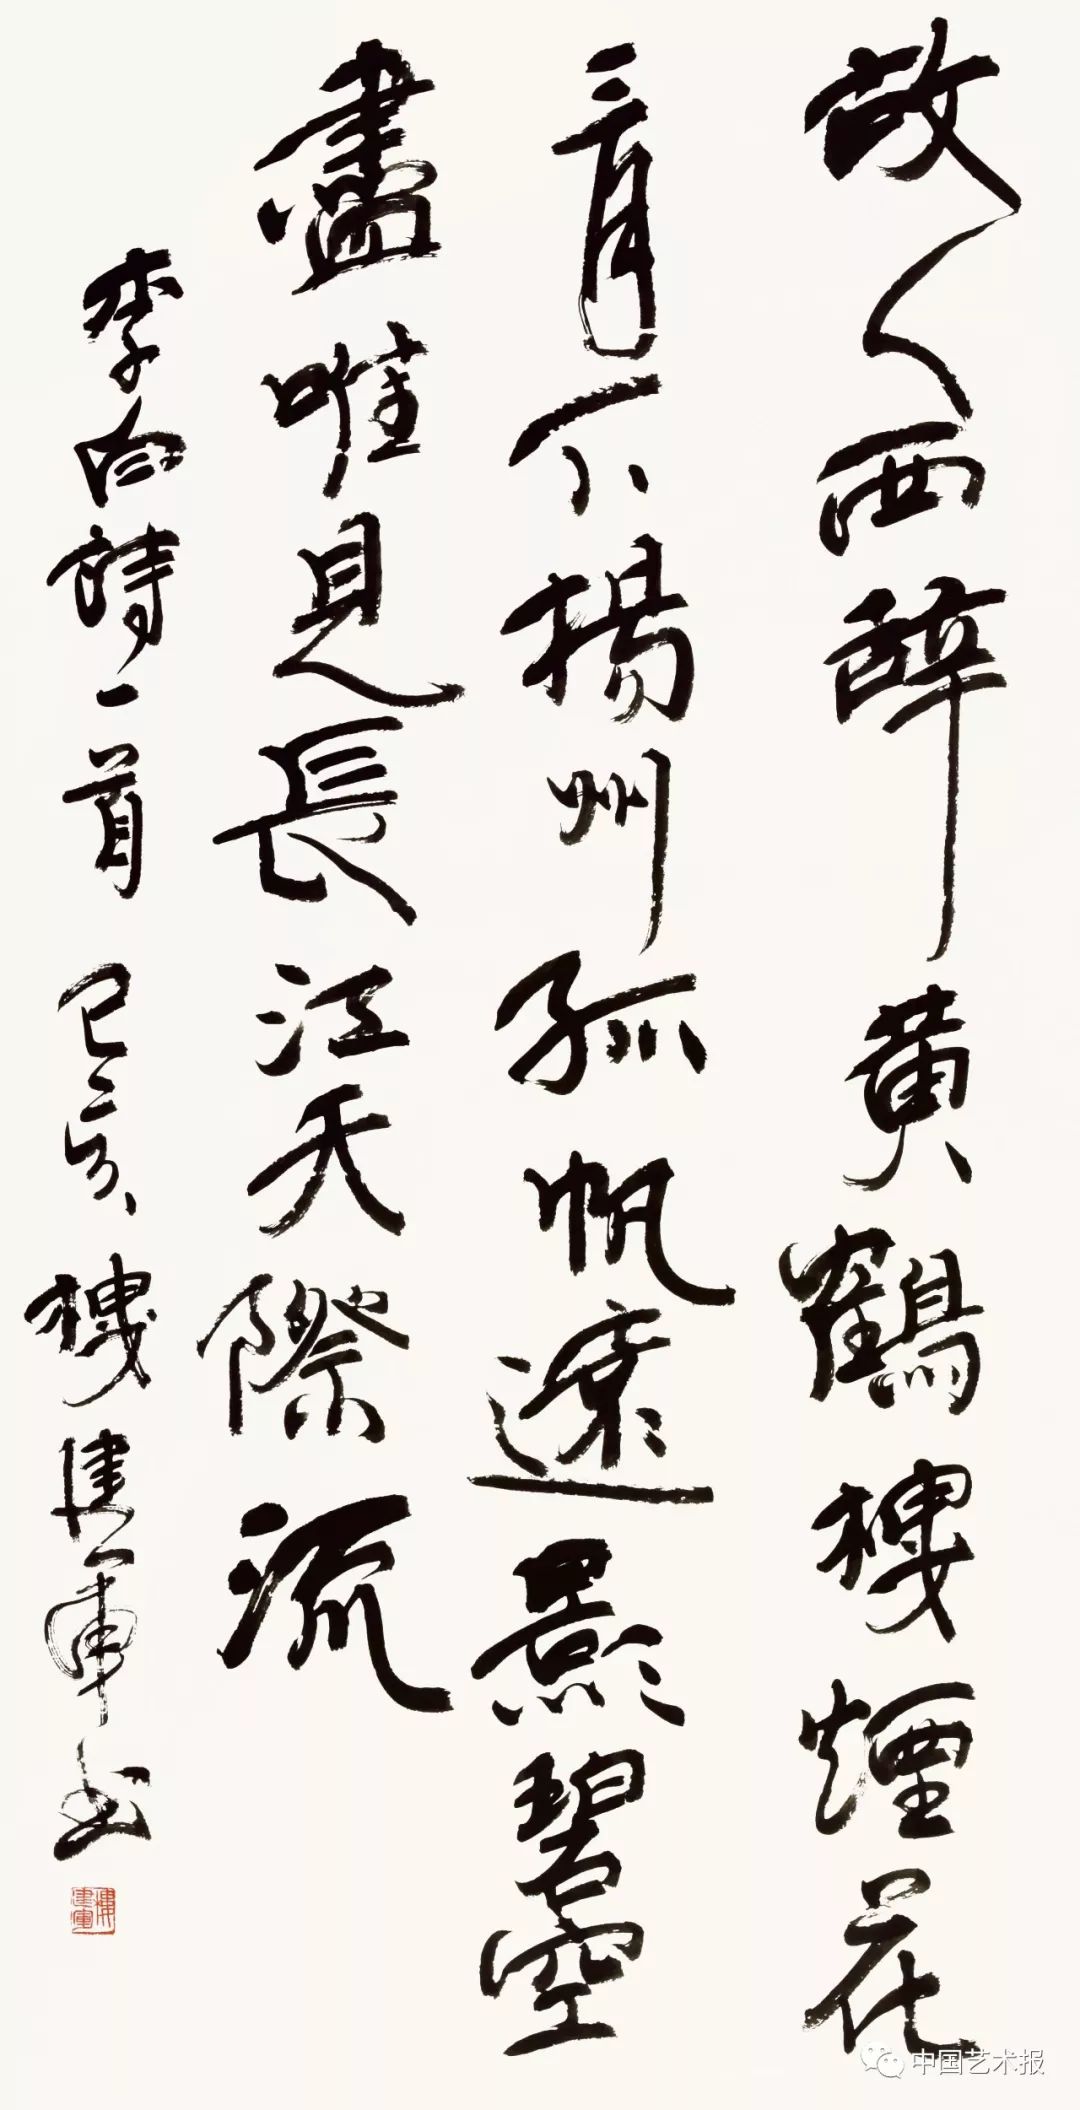 故人西辞黄鶴樓煙花
三月下揚州孤帆遠影碧空
盡唯見長江天際流
李白詩一首 己亥 樓建軍书
樓建軍
中国艺术报